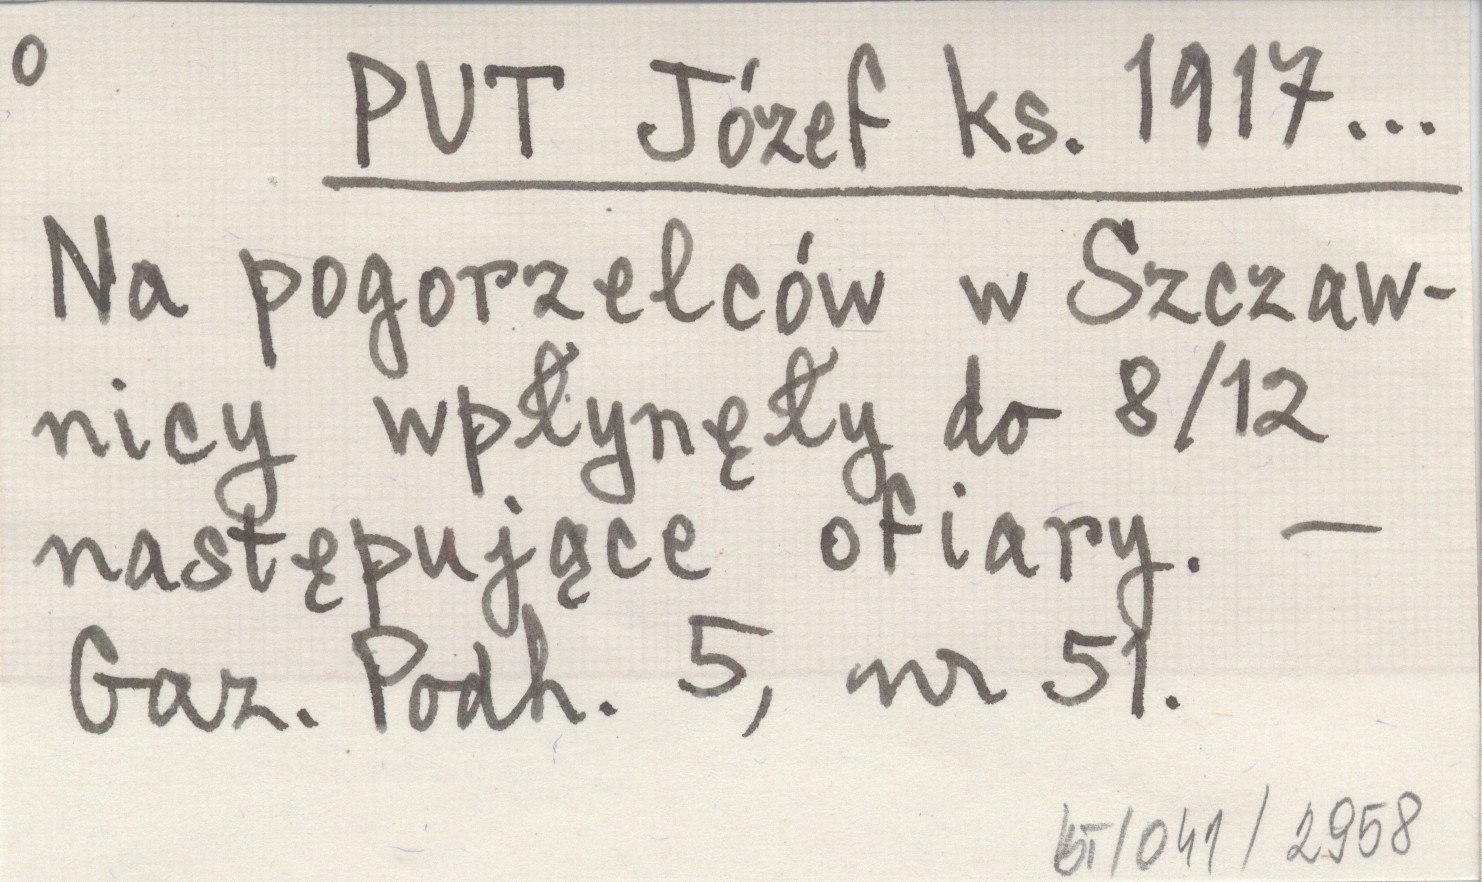 o
PUT Józef ks. 1917...
Na pogorzelców w Szczaw-
nicy wpłynęły do 8/12
następujące ofiary. —
Gaz. Podh. 5, nr 51.
/041/2958